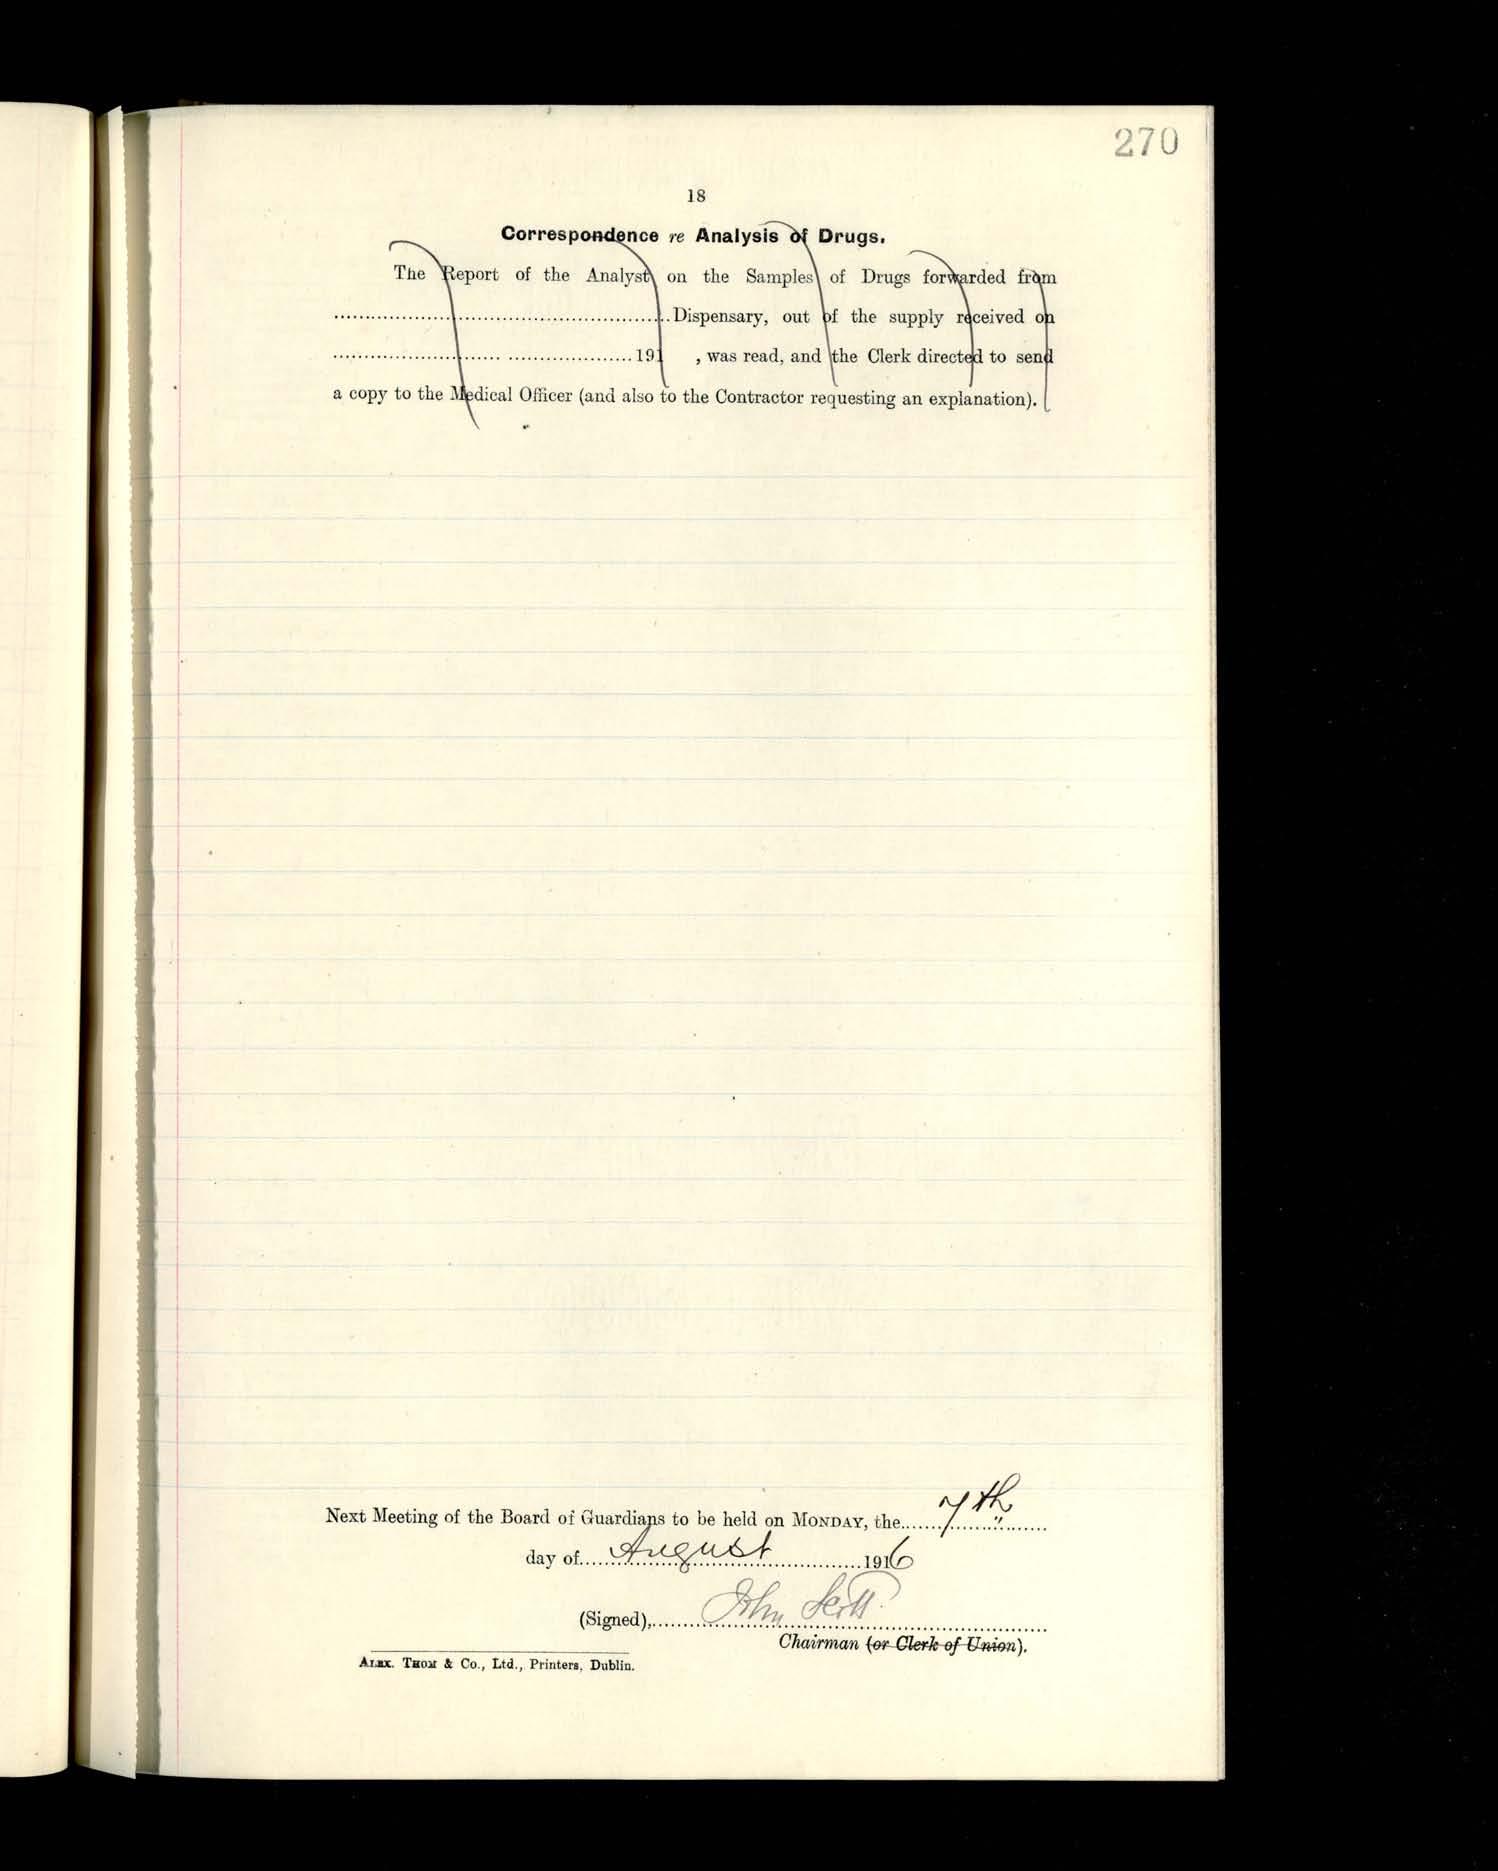 270
18
Correspondence re Analysis of Drugs.
The Report of the Analyst on the Samples of Drugs forwarded from
........................................................Dispensary, out of the supply received on
............................ .....................191 , was read, and the Clerk directed to send
a copy to the Medical Officer (and also to the Contractor requesting an explanation).
Next Meeting of the Board of Guardians to be held on MONDAY, the 7th
day of August 1916
(Signed), John Scott
Chairman (or Clerk of Union).
ALEX. THOM & Co., Ltd., Printers, Dublin.